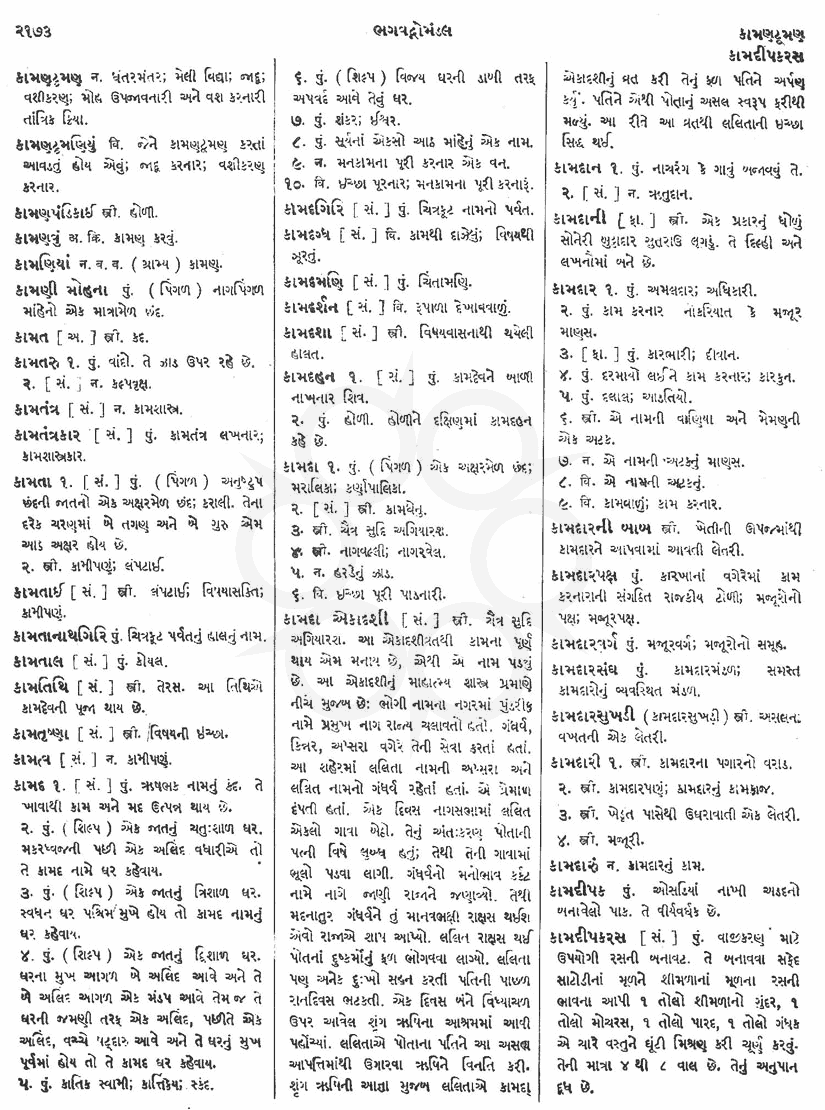 ૨૧૭૩
ભગવદ્ગોમંડલ
કામણટૂમણ
કામદીપકરસ
કામણટૂમણ ન. ધંતરમંતર; મેલી વિદ્યા; જાદૂ;
વશીકરણ; મોહ ઉપજાવનારી અને વશ કરનારી
તાંત્રિક ક્રિયા.
કામણટૂમણિયું વિ. જેને કામણટૂમણ કરતાં
આવડતું હોય એવું; જાદૂ કરનાર; વશીકરણ
કરનાર.
કામણપંડિકાઈ સ્ત્રી. હોળી.
કામણવું અ. ક્રિ. કામણ કરવું.
કામણિયાં ન. બ. વ. ( ગ્રામ્ય ) કામણ.
કામણી મોહના પું. ( પિંગળ ) નાગપિંગળ
માંહેનો એક માત્રામેળ છંદ.
કામત [ અ. ] સ્ત્રી. કદ.
કામતરુ ૧. પું. વાંદો. તે ઝાડ ઉપર રહે છે.
૨. [ સં. ] ન. કલ્પવૃક્ષ.
કામતંત્ર [ સં. ] ન. કામશાસ્ત્ર.
કામતંત્રકાર [ સં. ] પું. કામતંત્ર લખનાર;
કામશાસ્ત્રકાર.
કામતા ૧. [ સં. ] પું. ( પિંગળ ) અનુષ્ટુપ
છંદની જાતનો એક અક્ષરમેળ છંદ; કરાલી. તેના
દરેક ચરણમાં બે તગણ અને બે ગુરુ એમ
આઠ અક્ષર હોય છે.
૨. સ્ત્રી. કામીપણું; લંપટાઈ.
કામતાઈ [ સં. ] સ્ત્રી. લંપટાઈ; વિષયાસક્તિ;
કામીપણું.
કામતાનાથગિરિ પું. ચિત્રકૂટ પર્વતનું હાલનું નામ.
કામતાલ [ સં. ] પું. કોયલ.
કામતિથિ [ સં. ] સ્ત્રી. તેરસ. આ તિથિએ
કામદેવની પૂજા થાય છે.
કામતૃષ્ણા [ સં. ] સ્ત્રી. વિષયની ઇચ્છા.
કામત્વ [ સં. ] ન. કામીપણું.
કામદ ૧. [ સં. ] પું. ઋષભક નામનું કંદ. તે
ખાવાથી કામ અને મદ ઉત્પન્ન થાય છે.
૨. પું. ( શિલ્પ ) એક જાતનું ચતુઃશાળ ઘર.
મકરધ્વજની પછી એક અલિંદ વધારીએ તો
તે કામદ નામે ઘર કહેવાય.
૩. પું. ( શિલ્પ ) એક જાતનું ત્રિશાળ ઘર.
સ્વધન ઘર પશ્ચિમ મુખે હોય તો કામદ નામનું
ઘર કહેવાય.
૪. પું. ( શિલ્પ ) એક જાતનું દ્વિશાળ ઘર.
ઘરના મુખ આગળ બે અલિંદ આવે અને તે
બે અલિંદ આગળ એક મંડપ આવે તેમજ તે
ઘરની જમણી તરફ એક અલિંદ, પછીતે એક
અલિંદ, વચ્ચે ષટ્દારુ આવે અને તે ઘરનું મુખ
પૂર્વમાં હોય તો તે કામદ ઘર કહેવાય.
૫. પું. કાર્તિક સ્વામી; કાર્ત્તિકેય; સ્કંદ.
૬. પું. ( શિલ્પ ) વિજય ઘરની ડાબી તરફ
અપવર્દ આવે તેવું ઘર.
૭. પું. શંકર; ઈશ્વર.
૮. પું. સૂર્યનાં એકસો આઠ માંહેનું એક નામ.
૯. ન. મનકામના પૂરી કરનાર એક વન.
૧૦. વિ. ઇચ્છા પૂરનાર; મનકામના પૂરી કરનારું.
કામદગિરિ [ સં. ] પું. ચિત્રકૂટ નામનો પર્વત.
કામદગ્ધ [ સં. ] વિ. કામથી દાઝેલું; વિષયથી
ઝૂરતું.
કામદમણિ [ સં. ] પું. ચિંતામણિ.
કામદર્શન [ સં. ] વિ. રૂપાળા દેખાવવાળું.
કામદશા [ સં. ] સ્ત્રી. વિષયવાસનાથી થયેલી
હાલત.
કામદહન ૧. [ સં. ] પું. કામદેવને બાળી
નાખનાર શિવ.
૨. પું. હોળી. હોળીને દક્ષિણમાં કામદહન
કહે છે.
કામદા ૧. પું. ( પિંગળ ) એક અક્ષરમેળ છંદ;
મરાલિકા; કર્ણપાલિકા.
૨. [ સં. ] સ્ત્રી. કામધેનુ.
૩. સ્ત્રી. ચૈત્ર સુદિ અગિયારશ.
૪. સ્ત્રી. નાગવલ્લી; નાગરવેલ.
૫. ન. હરડેનું ઝાડ.
૬. વિ. ઇચ્છા પૂરી પાડનારી.
કામદા એકાદશી [ સં. ] સ્ત્રી. ચૈત્ર સુદિ
અગિયારશ. આ એકાદશીવ્રતથી કામના પૂર્ણ
થાય એમ મનાય છે, એથી એ નામ પડ્યું
છે. આ એકાદશીનું માહાત્મ્ય શાસ્ત્ર પ્રમાણે
નીચે મુજબ છે: ભોગી નામના નગરમાં પુંડરીક
નામે પ્રમુખ નાગ રાજ્ય ચલાવતો હતો. ગંધર્વ,
કિન્નર, અપ્સરા વગેરે તેની સેવા કરતાં હતાં.
આ શહેરમાં લલિતા નામની અપ્સરા અને
લલિત નામનો ગંધર્વ રહેતાં હતાં. એ પ્રેમાળ
દંપતી હતાં. એક દિવસ નાગસભામાં લલિત
એકલો ગાવા બેઠો. તેનું અંતઃકરણ પોતાની
પત્ની વિષે લુબ્ધ હતું; તેથી તેની ગાવામાં
ભૂલો પડવા લાગી. ગંધર્વનો મનોભાવ કર્કટ
નામે નાગે જાણી રાજાને જણાવ્યો. તેથી
મદનાતુર ગંધર્વને તું માનવભક્ષી રાક્ષસ થઈશ
એવો રાજાએ શાપ આપ્યો. લલિત રાક્ષસ થઈ
પોતનાં દુષ્કર્મોનું ફળ ભોગવવા લાગ્યો. લલિતા
પણ અનેક દુઃખો સહન કરતી પતિની પાછળ
રાતદિવસ ભટકતી. એક દિવસ બંને વિંધ્યાચળ
ઉપર આવેલ શૃંગ ઋષિના આશ્રમમાં આવી
પહોંચ્યાં. લલિતાએ પોતાના પતિને આ અસહ્ય
આપત્તિમાંથી ઉગારવા ઋષિને વિનતિ કરી.
શૃંગ ઋષિની આજ્ઞા મુજબ લલિતાએ કામદા
એકાદશીનું વ્રત કરી તેનું ફળ પતિને અર્પણ
કર્યું. પતિને એથી પોતાનું અસલ સ્વરૂપ ફરીથી
મળ્યું. આ રીતે આ વ્રતથી લલિતાની ઇચ્છા
સિદ્ધ થઈ.
કામદાન ૧. પું. નાચરંગ કે ગાવું બજાવવું તે.
૨. [ સં. ] ન. ઋતુદાન.
કામદાની [ ફા. ] સ્ત્રી. એક પ્રકારનું ધોળું
સોનેરી બુટ્ટાદાર સુતરાઉ લૂગડું. તે દિલ્હી અને
લખનૌમાં બને છે.
કામદાર ૧. પું. અમલદાર; અધિકારી.
૨. પું. કામ કરનાર નોકરિયાત કે મજૂર
માણસ.
૩. [ ફા. ] પું. કારભારી; દીવાન.
૪. પું. દરમાયો લઈને કામ કરનાર; કારકુન.
૫. પું. દલાલ; આડતિયો.
૬. સ્ત્રી. એ નામની વાણિયા અને મેમણની
એક અટક.
૭. ન. એ નામની અટકનું માણસ.
૮. વિ. એ નામની અટકનું.
૯. વિ. કામવાળું; કામ કરનાર.
કામદારની બાબ સ્ત્રી. ખેતીની ઉપજમાંથી
કામદારને આપવામાં આવતી લેતરી.
કામદારપક્ષ પું. કારખાનાં વગેરેમાં કામ
કરનારાની સંગઠિત રાજકીય ટોળી; મજૂરોનો
પક્ષ; મજૂરપક્ષ.
કામદારવર્ગ પું. મજૂરવર્ગ; મજૂરોનો સમૂહ.
કામદારસંઘ પું. કામદારમંડળ; સમસ્ત
કામદારોનું વ્યવસ્થિત મંડળ.
કામદારસુખડી (કામદારસુખડી) સ્ત્રી. અસલના
વખતની એક લેતરી.
કામદારી ૧. સ્ત્રી. કામદારના પગારનો વરાડ.
૨. સ્ત્રી. કામદારપણું; કામદારનું કામકાજ.
૩. સ્ત્રી. ખેડૂત પાસેથી ઉઘરાવાતી એક લેતરી.
૪. સ્ત્રી. મજૂરી.
કામદારું ન. કામદારનું કામ.
કામદીપક પું. ઓસડિયાં નાખી અડદનો
બનાવેલો પાક. તે વીર્યવર્ધક છે.
કામદીપકરસ [ સં. ] પું. વાજીકરણ માટે
ઉપયોગી રસની બનાવટ. તે બનાવવા સફેદ
સાટોડીનાં મૂળને શીમળાનાં મૂળના રસની
ભાવના આપી ૧ તોલો શીમળાનો ગુંદર, ૧
તોલો મોચરસ, ૧ તોલો પારદ, ૧ તોલો ગંધક
એ ચારે વસ્તુને ઘૂંટી મિશ્રણ કરી ચૂર્ણ કરવું.
તેની માત્રા ૪ થી ૮ વાલ છે. તેનું અનુપાન
દૂધ છે.